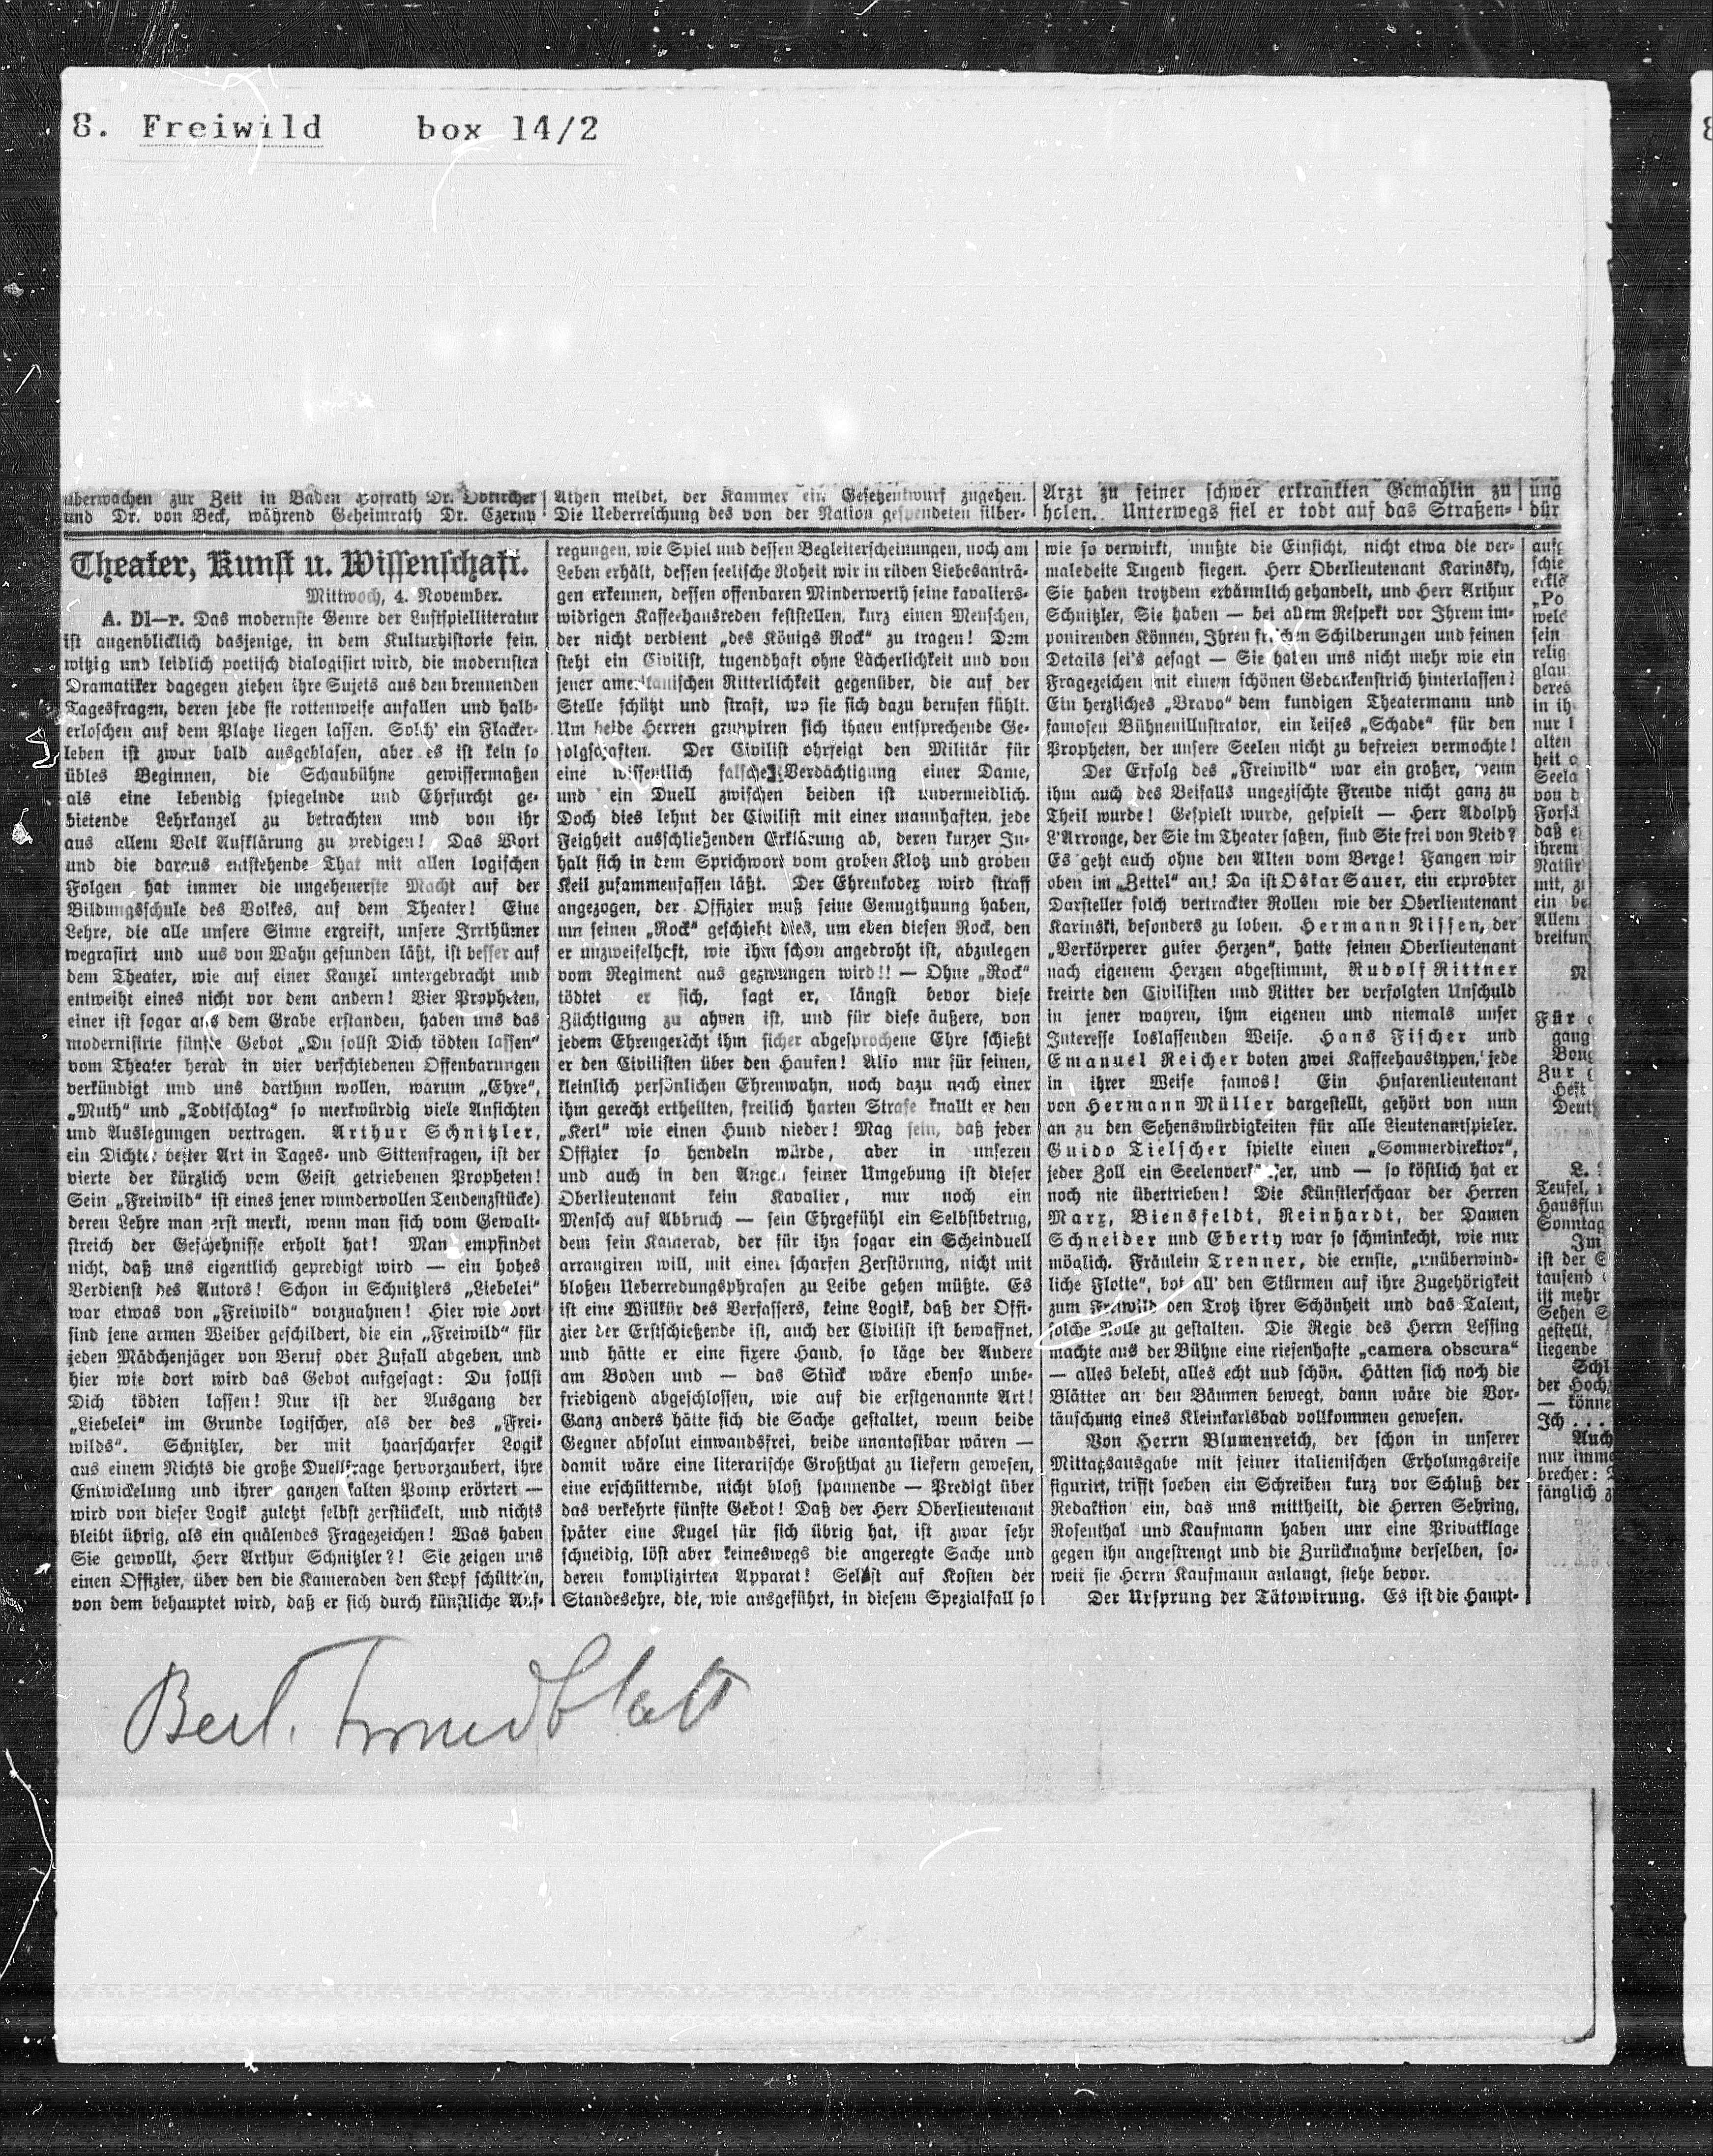 8. Freiwild box 14/2
überwachen zur Zeit in Baden Hofrath Dr.
und Dr. von Beck, während Geheimrath Dr. Czerny
Theater, Kunst u. Wissenschaft.
Mittwoch, 4. November.
A. Dl—r. Das modernste Genre der Lustspielliteratur
ist augenblicklich dasjenige, in dem Kulturhistorie fein,
witzig und leidlich poetisch dialogisirt wird, die modernsten
Dramatiker dagegen ziehen ihre Sujets aus den brennenden
Tagesfragen, deren jede sie rottenweise anfallen und halb-
erloschen auf dem Platze liegen lassen. Solch' ein Flacker-
leben ist zwar bald ausgeblasen, aber es ist kein so
übles Beginnen, die Schaubühne gewissermaßen
als eine lebendig spiegelnde und Ehrfurcht ge-
bietende Lehrkanzel zu betrachten und von ihr
aus allem Volk Aufklärung zu predigen! Das Wort
und die daraus entstehende That mit allen logischen
Folgen hat immer die ungeheuerste Macht auf der
Bildungsschule des Volkes, auf dem Theater! Eine
Lehre, die alle unsere Sinne ergreift, unsere Irrthümer
wegrasirt und uns von Wahn gesunden läßt, ist besser auf
dem Theater, wie auf einer Kanzel untergebracht und
entweiht eines nicht vor dem andern! Vier Propheten,
einer ist sogar aus dem Grabe erstanden, haben uns das
modernisirte fünfte Gebot „Du sollst Dich tödten lassen“
vom Theater herab in vier verschiedenen Offenbarungen
verkündigt und uns darthun wollen, warum „Ehre“,
„Muth“ und „Todtschlag“ so merkwürdig viele Ansichten
und Auslegungen vertragen. Arthur Schnitzler,
ein Dichter bester Art in Tages- und Sittenfragen, ist der
vierte der kürzlich vom Geist getriebenen Propheten!
Sein „Freiwild“ ist eines jener wundervollen Tendenzstücke)
deren Lehre man erst merkt, wenn man sich vom Gewalt-
streich der Geschehnisse erholt hat! Man empfindet
nicht, daß uns eigentlich gepredigt wird — ein hohes
Verdienst des Autors! Schon in Schnitzlers „Liebelei“
war etwas von „Freiwild“ vorzuahnen! Hier wie dort
sind jene armen Weiber geschildert, die ein „Freiwild“ für
jeden Mädchenjäger von Beruf oder Zufall abgeben, und
hier wie dort wird das Gebot aufgesagt: Du sollst
Dich tödten lassen! Nur ist der Ausgang der
„Liebelei“ im Grunde logischer, als der des „Frei-
wilds“. Schnitzler, der mit haarscharfer Logik
aus einem Nichts die große Duellfrage hervorzaubert, ihre
Entwickelung und ihrer ganzen kalten Pomp erörtert —
wird von dieser Logik zuletzt selbst zerstückelt, und nichts
bleibt übrig, als ein quälendes Fragezeichen! Was haben
Sie gewollt, Herr Arthur Schnitzler?! Sie zeigen uns
einen Offizier, über den die Kameraden den Kopf schütteln,
von dem behauptet wird, daß er sich durch künstliche Auf-
Athen meldet, der Kammer ein Gesetzentwurf zugehen.
Die Ueberreichung des von der Nation gespendeten silber-
regungen, wie Spiel und dessen Begleiterscheinungen, noch am
Leben erhält, dessen seelische Roheit wir in rüden Liebesanträ-
gen erkennen, dessen offenbaren Minderwerth seine kavaliers-
widrigen Kaffeehausreden feststellen, kurz einen Menschen,
der nicht verdient „des Königs Rock“ zu tragen! Dem
steht ein Civilist, tugendhaft ohne Lächerlichkeit und von
jener amerikanischen Ritterlichkeit gegenüber, die auf der
Stelle schützt und straft, wo sie sich dazu berufen fühlt.
Um beide Herren gruppiren sich ihnen entsprechende Ge-
folgschaften. Der Civilist ohrfeigt den Militär für
eine wissentlich falsche Verdächtigung einer Dame,
und ein Duell zwischen beiden ist unvermeidlich.
Doch dies lehnt der Civilist mit einer mannhaften, jede
Feigheit ausschließenden Erklärung ab, deren kurzer In-
halt sich in dem Sprichwort vom groben Klotz und groben
Keil zusammenfassen läßt. Der Ehrenkodex wird straff
angezogen, der Offizier muß seine Genugthuung haben,
um seinen „Rock“ geschieht dies, um eben diesen Rock, den
er unzweifelhaft, wie ihm schon angedroht ist, abzulegen
vom Regiment aus gezwungen wird!! — Ohne „Rock“
tödtet er sich, sagt er, längst bevor diese
Züchtigung zu ahnen ist, und für diese äußere, von
jedem Ehrengericht ihm sicher abgesprochene Ehre schießt
er den Civilisten über den Haufen! Also nur für seinen,
kleinlich persönlichen Ehrenwahn, noch dazu nach einer
ihm gerecht ertheilten, freilich harten Strafe knallt er den
„Kerl“ wie einen Hund nieder! Mag sein, daß jeder
Offizier so handeln würde, aber in unseren
und auch in den Augen seiner Umgebung ist dieser
Oberlieutenant kein Kavalier, nur noch ein
Mensch auf Abbruch — sein Ehrgefühl ein Selbstbetrug,
dem sein Kamerad, der für ihn sogar ein Scheinduell
arrangiren will, mit einer scharfen Zerstörung, nicht mit
bloßen Ueberredungsphrasen zu Leibe gehen müßte. Es
ist eine Willkür des Verfassers, keine Logik, daß der Offi-
zier der Erstschießende ist, auch der Civilist ist bewaffnet,
und hätte er eine fixere Hand, so läge der Andere
am Boden und — das Stück wäre ebenso unbe-
friedigend abgeschlossen, wie auf die erstgenannte Art!
Ganz anders hätte sich die Sache gestaltet, wenn beide
Gegner absolut einwandsfrei, beide unantastbar wären —
damit wäre eine literarische Großthat zu liefern gewesen,
eine erschütternde, nicht bloß spannende — Predigt über
das verkehrte fünfte Gebot! Daß der Herr Oberlieutenant
später eine Kugel für sich übrig hat, ist zwar sehr
schneidig, löst aber keineswegs die angeregte Sache und
deren komplizirten Apparat! Selbst auf Kosten der
Standesehre, die, wie ausgeführt, in diesem Spezialfall so
Arzt zu seiner schwer erkrankten Gemahlin zu
holen. Unterwegs fiel er todt auf das Straßen-
wie so verwirkt, mußte die Einsicht, nicht etwa die ver-
maledeite Tugend siegen. Herr Oberlieutenant Karinsky,
Sie haben trotzdem erbärmlich gehandelt, und Herr Arthur
Schnitzler, Sie haben — bei allem Respekt vor Ihrem im-
ponirenden Können, Ihren frischen Schilderungen und feinen
Details sei's gesagt — Sie haben uns nicht mehr wie ein
Fragezeichen mit einem schönen Gedankenstrich hinterlassen!
Ein herzliches „Bravo“ dem kundigen Theatermann und
famosen Bühnenillustrator, ein leises „Schade“ für den
Propheten, der unsere Seelen nicht zu befreien vermochte!
Der Erfolg des „Freiwild“ war ein großer, wenn
ihm auch des Beifalls ungezischte Freude nicht ganz zu
Theil wurde! Gespielt wurde, gespielt — Herr Adolph
L'Arronge, der Sie im Theater saßen, sind Sie frei von Neid?
Es geht auch ohne den Alten vom Berge! Fangen wir
oben im „Zettel“ an! Da ist Oskar Sauer, ein erprobter
Darsteller solch vertrackter Rollen wie der Oberlieutenant
Karinski, besonders zu loben. Hermann Nissen, der
„Verkörperer guter Herzen“, hatte seinen Oberlieutenant
nach eigenem Herzen abgestimmt, Rudolf Rittner
kreirte den Civilisten und Ritter der verfolgten Unschuld
in jener wahren, ihm eigenen und niemals unser
Interesse loslassenden Weise. Hans Fischer und
Emanuel Reicher boten zwei Kaffeehaustypen, jede
in ihrer Weise famos! Ein Husarenlieutenant
von Hermann Müller dargestellt, gehört von nun
an zu den Sehenswürdigkeiten für alle Lieutenantspieler.
Guido Tielscher spielte einen „Sommerdirektor“,
jeder Zoll ein Seelenverkäufer, und — so köstlich hat er
noch nie übertrieben! Die Künstlerschaar der Herren
Marx, Biensfeldt, Reinhardt, der Damen
Schneider und Eberty war so schminkecht, wie nur
möglich. Fräulein Trenner, die ernste, „unüberwind-
liche Flotte“, bot all' den Stürmen auf ihre Zugehörigkeit
zum Freiwild den Trotz ihrer Schönheit und das Talent,
solche Rolle zu gestalten. Die Regie des Herrn Lessing
machte aus der Bühne eine riesenhafte „camera obscura“
— alles belebt, alles echt und schön. Hätten sich noch die
Blätter an den Bäumen bewegt, dann wäre die Vor-
täuschung eines Kleinkarlsbad vollkommen gewesen.
Von Herrn Blumenreich, der schon in unserer
Mittagsausgabe mit seiner italienischen Erholungsreise
figurirt, trifft soeben ein Schreiben kurz vor Schluß der
Redaktion ein, das uns mittheilt, die Herren Sehring,
Rosenthal und Kaufmann haben nur eine Privatklage
gegen ihn angestrengt und die Zurücknahme derselben, so-
weit sie Herrn Kaufmann anlangt, stehe bevor.
Der Ursprung der Tätowirung. Es ist die Haupt-
ung
dür
schie
„Po
welc
sein
relig
glau
deres
in ih
nur
alten
heit
Seela
von d
Forsch
daß e
ihrem
Natur
mit, zu
ein be
Allem
breitun
Für
gang
Zur
Heft
Teufel,
Hausflur
Sonntag
Im
ist der
tausend
ist mehr
Sehen S
gestellt,
liegende
Schl
der Hoch
— könne
Ich . . .
Auch
nur imme
brecher:
fänglich z
Berl. Fremdblatt